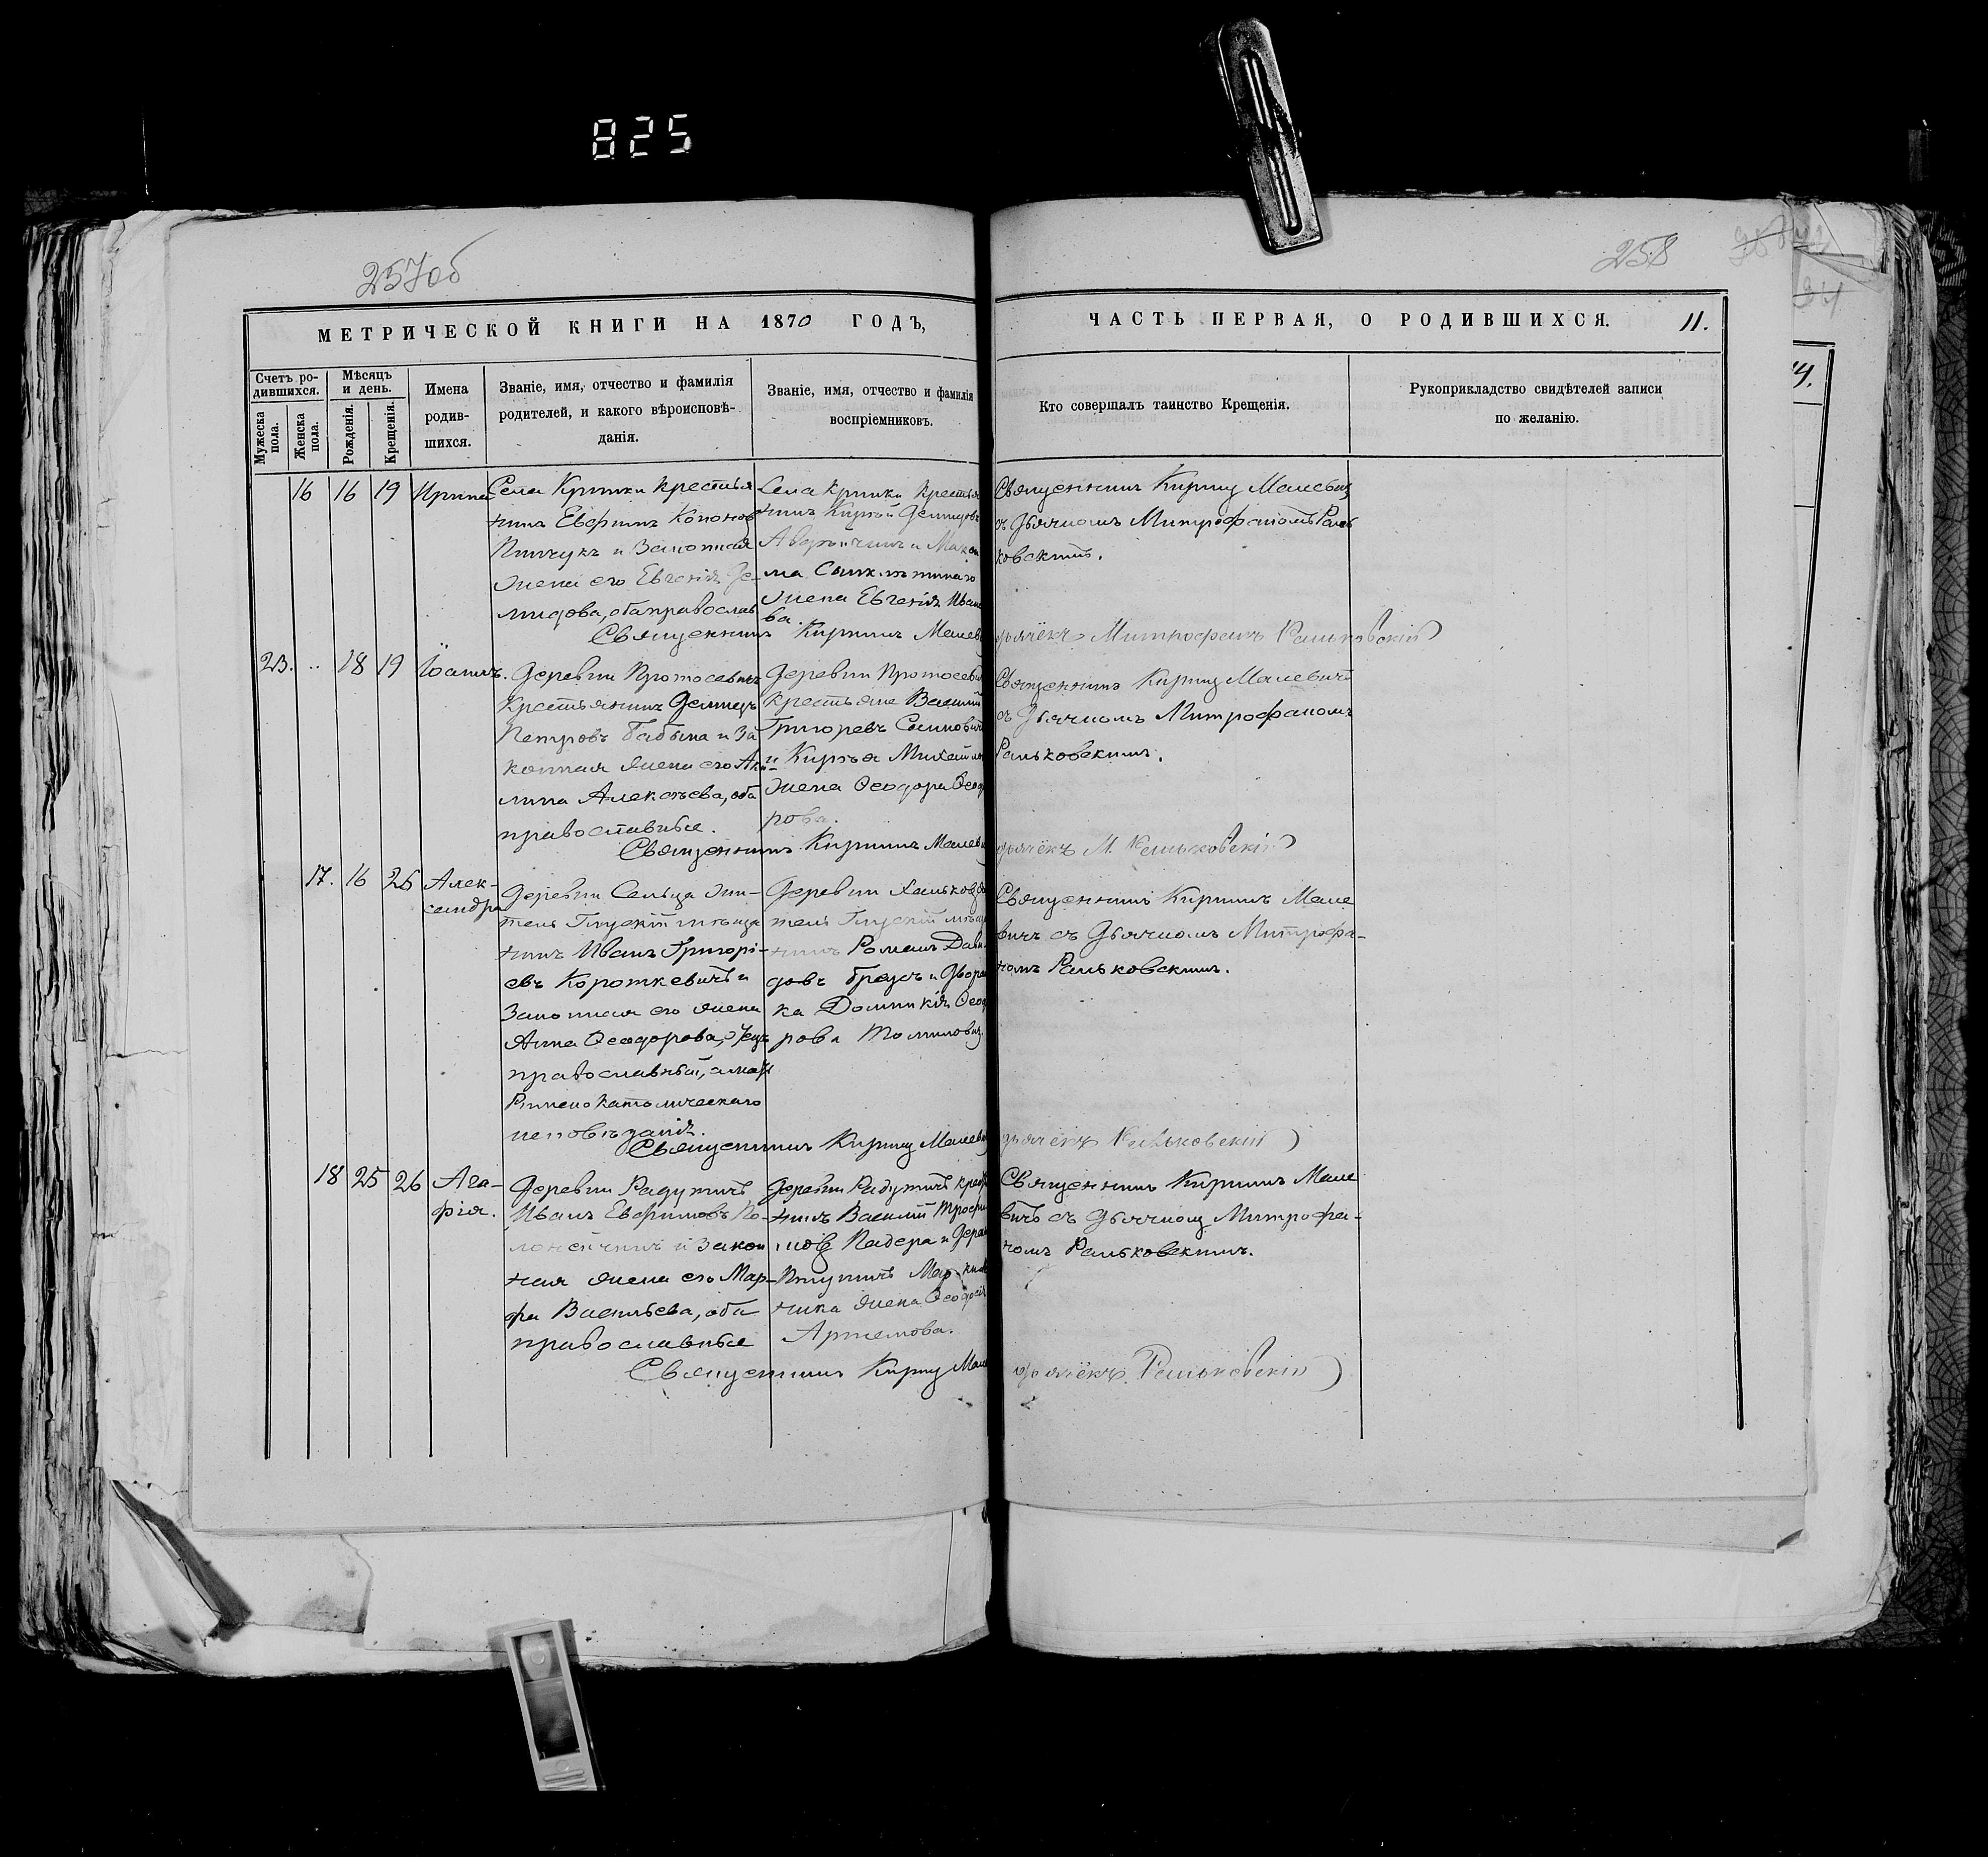 825
257об
258
МЕТРИЧЕСКОЙ КНИГИ НА 1870 ГОДЪ,
ЧАСТЬ ПЕРВАЯ, О РОДИВШИХСЯ. 11.
Счетъ ро-
дившихся.
Мужеска пола.
Женска пола.
Мѣсяцъ
и день.
Рожденія.
Крещенія.
Имена
родив-
шихся.
Званіе, имя, отчество и фамилія
родителей, и какого вѣроисповѣ-
данія.
Званіе, имя, отчество и фамилія
воспріемниковъ.
Кто совершалъ таинство Крещенія.
Рукоприкладство свидѣтелей записи
по желанію.
16 16 19 Ирина
Села Крюки крестья
нинъ Евфимъ Кононов
Пинчукъ и Законная
жена его Евгенія Де-
мидова, оба православ
Села Крюки крестья
нинъ Демидовъ
жена Евгенія Ива
ва.
Священникъ Кирилъ Малевич
съ Дьячкомъ Митрофаномъ Раль
ковскимъ.
Священникъ Кирилъ Малев
дьячекъ Митрофанъ Ральковскій
23. .. 18 19 Іоаннъ.
Деревни Протосевичъ
крестьянинъ Демидъ
Петровъ Бабына и За
конная жена его Аку
лина Алексѣева, оба
православные.
Деревни Протосеви
крестьяне Василій
Григоревъ
и Михайло
жена Ѳеодора Ѳеод
рова.
Священникъ Кирилъ Малевичъ
съ Дьячкомъ Митрофаномъ
Ральковскимъ.
Священникъ Кирилъ Малев
дьячекъ М. Ральковскій
17. 16 26 Алек-
сандра
Деревни Сельца жи-
тель Глускій мѣща
нинъ Иванъ Григорі-
евъ Короткевичъ и
Законная его жена
Анна Ѳеодорова, Отецъ
православный, а мать
Римско Католическаго
исповѣданія.
Деревни
тель Глускій мѣща
нинъ Романъ Дави
довъ и Дворян
ка Доминикія Ѳеод
рова
Священникъ Кирилъ Мале
вичъ съ Дьячкомъ Митрофа-
номъ Ральковскимъ.
Священникъ Кирилъ Малев
дьячекъ Ральковскій
18 25 26 Ага-
фія.
Деревни Радутичъ
Иванъ Евфимовъ По-
и Закон
ная жена его Мар-
фа Васильева, оба
православные
Деревни Радутичъ крест
нинъ Василій Трофи
мовъ Падера и Дерев
жена Ѳеодосія
Артемова.
Священникъ Кирилъ Мале
вичъ съ Дьячкомъ Митрофа-
номъ Ральковскимъ.
Священникъ Кирилъ Мале
дьячекъ Ральковскій